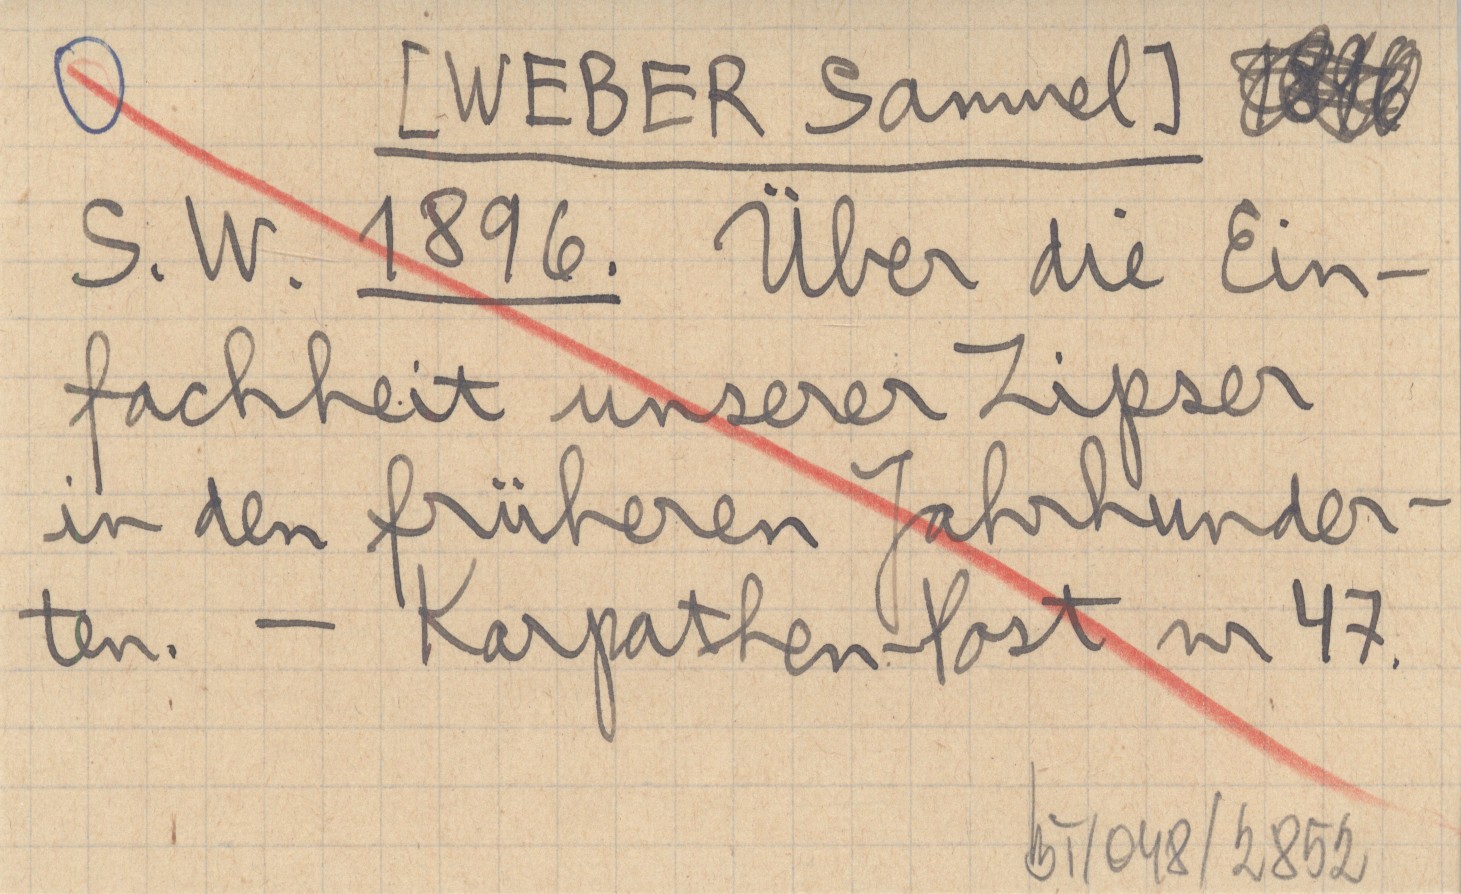 [WEBER Samuel]
S. W. 1896. Über die Ein-
fachheit unserer Zipser
in den früheren Jahrhunder-
ten. — Karpathen-Post nr 47.
BT/048/2852